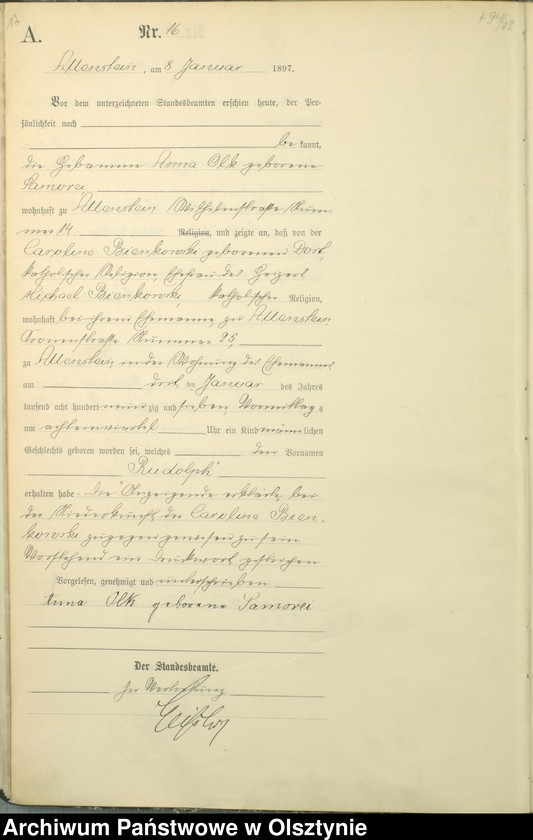 A.
Nr. 16
Allenstein, am 8 Januar 1897.
Vor dem unterzeichneten Standesbeamten erschien heute, der Per-
sönlichkeit nach
be kannt,
die Hebamme Anna Olk geborene
Samorei,
wohnhaft zu Allenstein Wilhelmstraße Num-
mer 14
Religion, und zeigte an, daß von der
Caroline Bienkowski geborenen Dost,
katholischer Religion, Ehefrau des Heizers
Michael Bienkowski, katholischer Religion,
wohnhaft bei ihrem Ehemanne, zu Allenstein,
Straße Nummer 25,
zu Allenstein in der Wohnung des Ehemannes
am des Januar des Jahres
tausend acht hundert neunzig und sieben Vormittags
um Uhr ein Kind männlichen
Geschlechts geboren worden sei, welches den Vornamen
Rudolph
erhalten habe. Die Anzeigende erklärte, bei
der Niederkunft der Caroline Bien-
kowski zugegen gewesen zu sein
Vorstehend ein Druckwort gestrichen
Vorgelesen, genehmigt und unterschrieben
Anna Olk geborene Samorei
Der Standesbeamte.
In Vertretung
Archiwum Państwowe w Olsztynie